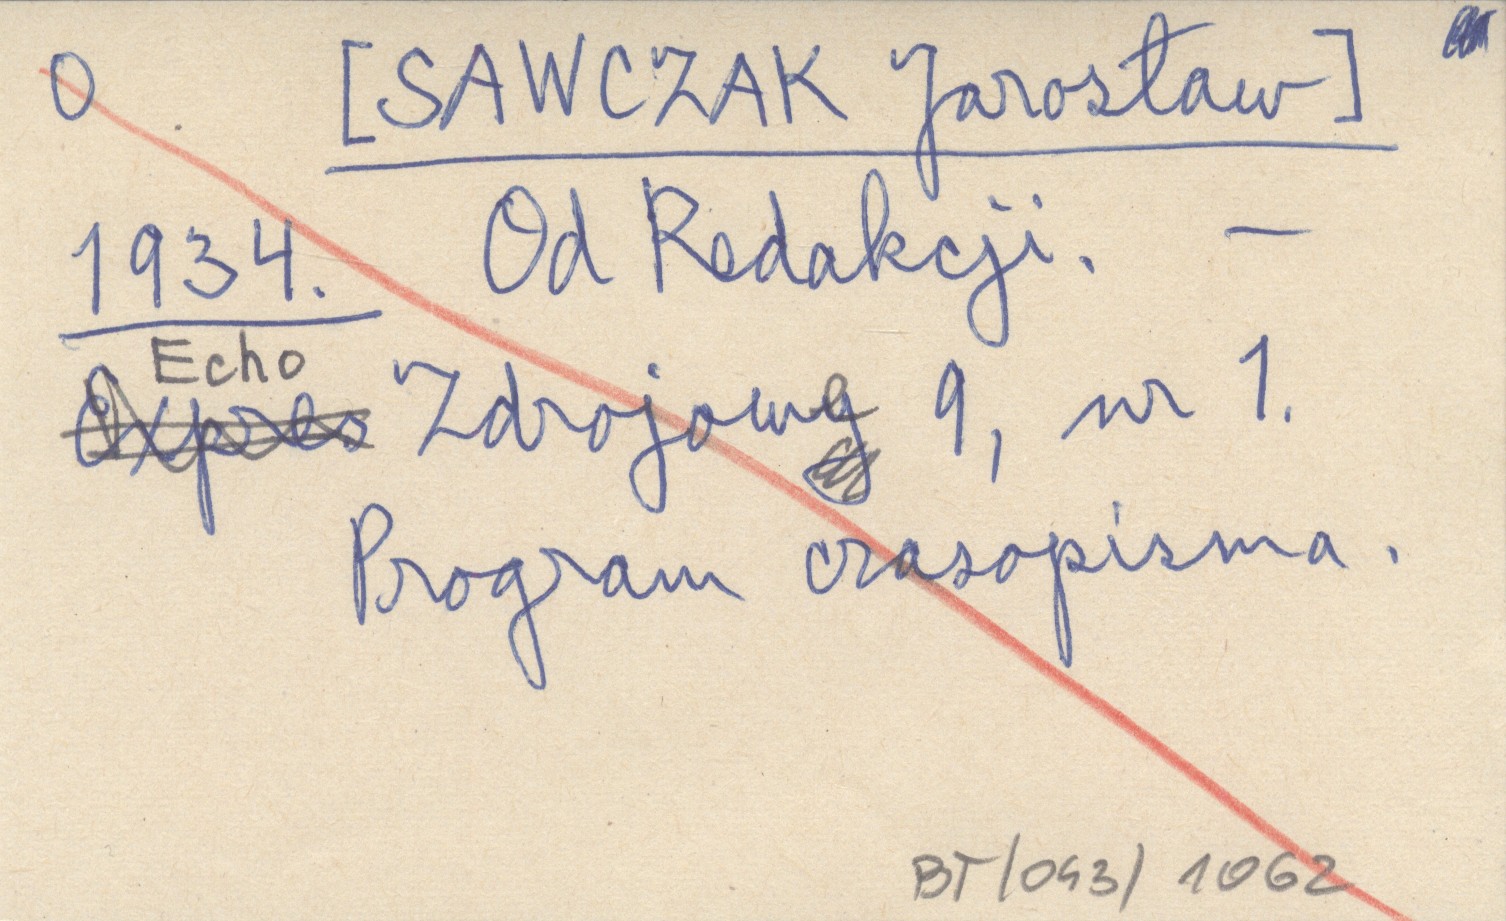 O [SAWCZAK Jarosław]
1934. Od Redakcji. —
Echo
Expres Zdrojowe 9, nr 1.
Program czasopisma.
BT/043/ 1062